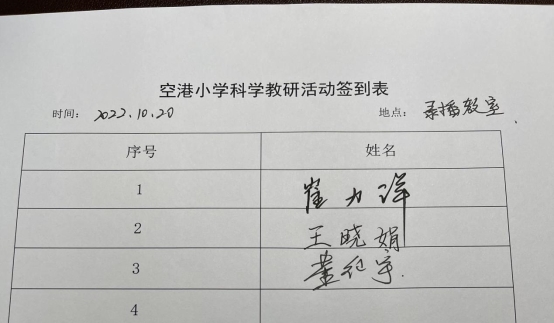 空港小学科学教研活动签到表
时间: 2022.10.20 地点: 录播教室
序号 姓名
1 崔力洋
2 王晓娟
3 董
4